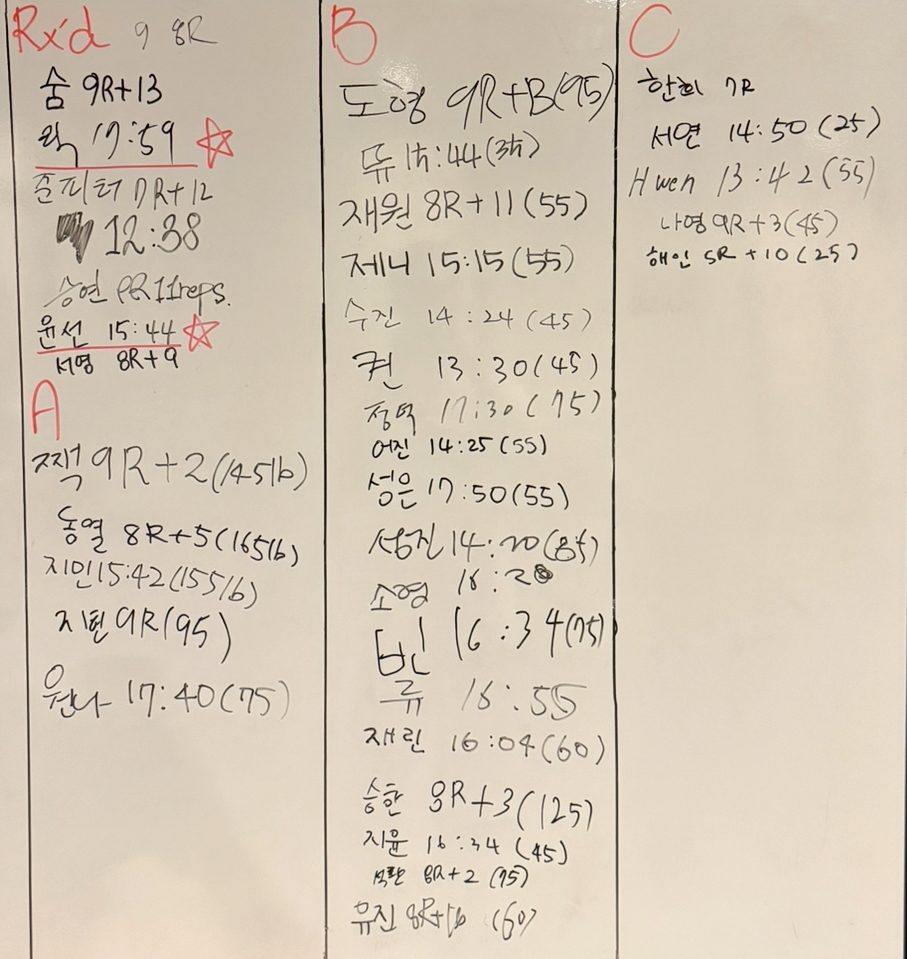 Rx'd 9 8R
숨 9R+13
욱 17:59
준피터 7R+12
12:38
승연 8R 11reps.
윤선 15:44
서영 8R+9
A
찍 9R+2(145lb)
동열 8R+5(165lb)
지민 15:42(155lb)
지현 9R(95)
원나 17:40(75)
B
도형 9R+13(95)
뜌 15:44(35)
재원 8R+11(55)
제니 15:15(55)
수진 14:24(45)
퀀 13:30(45)
정덕 17:30(75)
어진 14:25(55)
성은 17:50(55)
성진 14:20(85)
소영 16:28
빈 16:34(75)
류 16:55
재린 16:04(60)
승한 8R+3(125)
지윤 16:34(45)
8R+2(75)
유진 8R+16 (60)
C
한희 7R
서연 14:50(25)
Hwen 13:42(55)
나영 9R+3(45)
해인 5R+10(25)